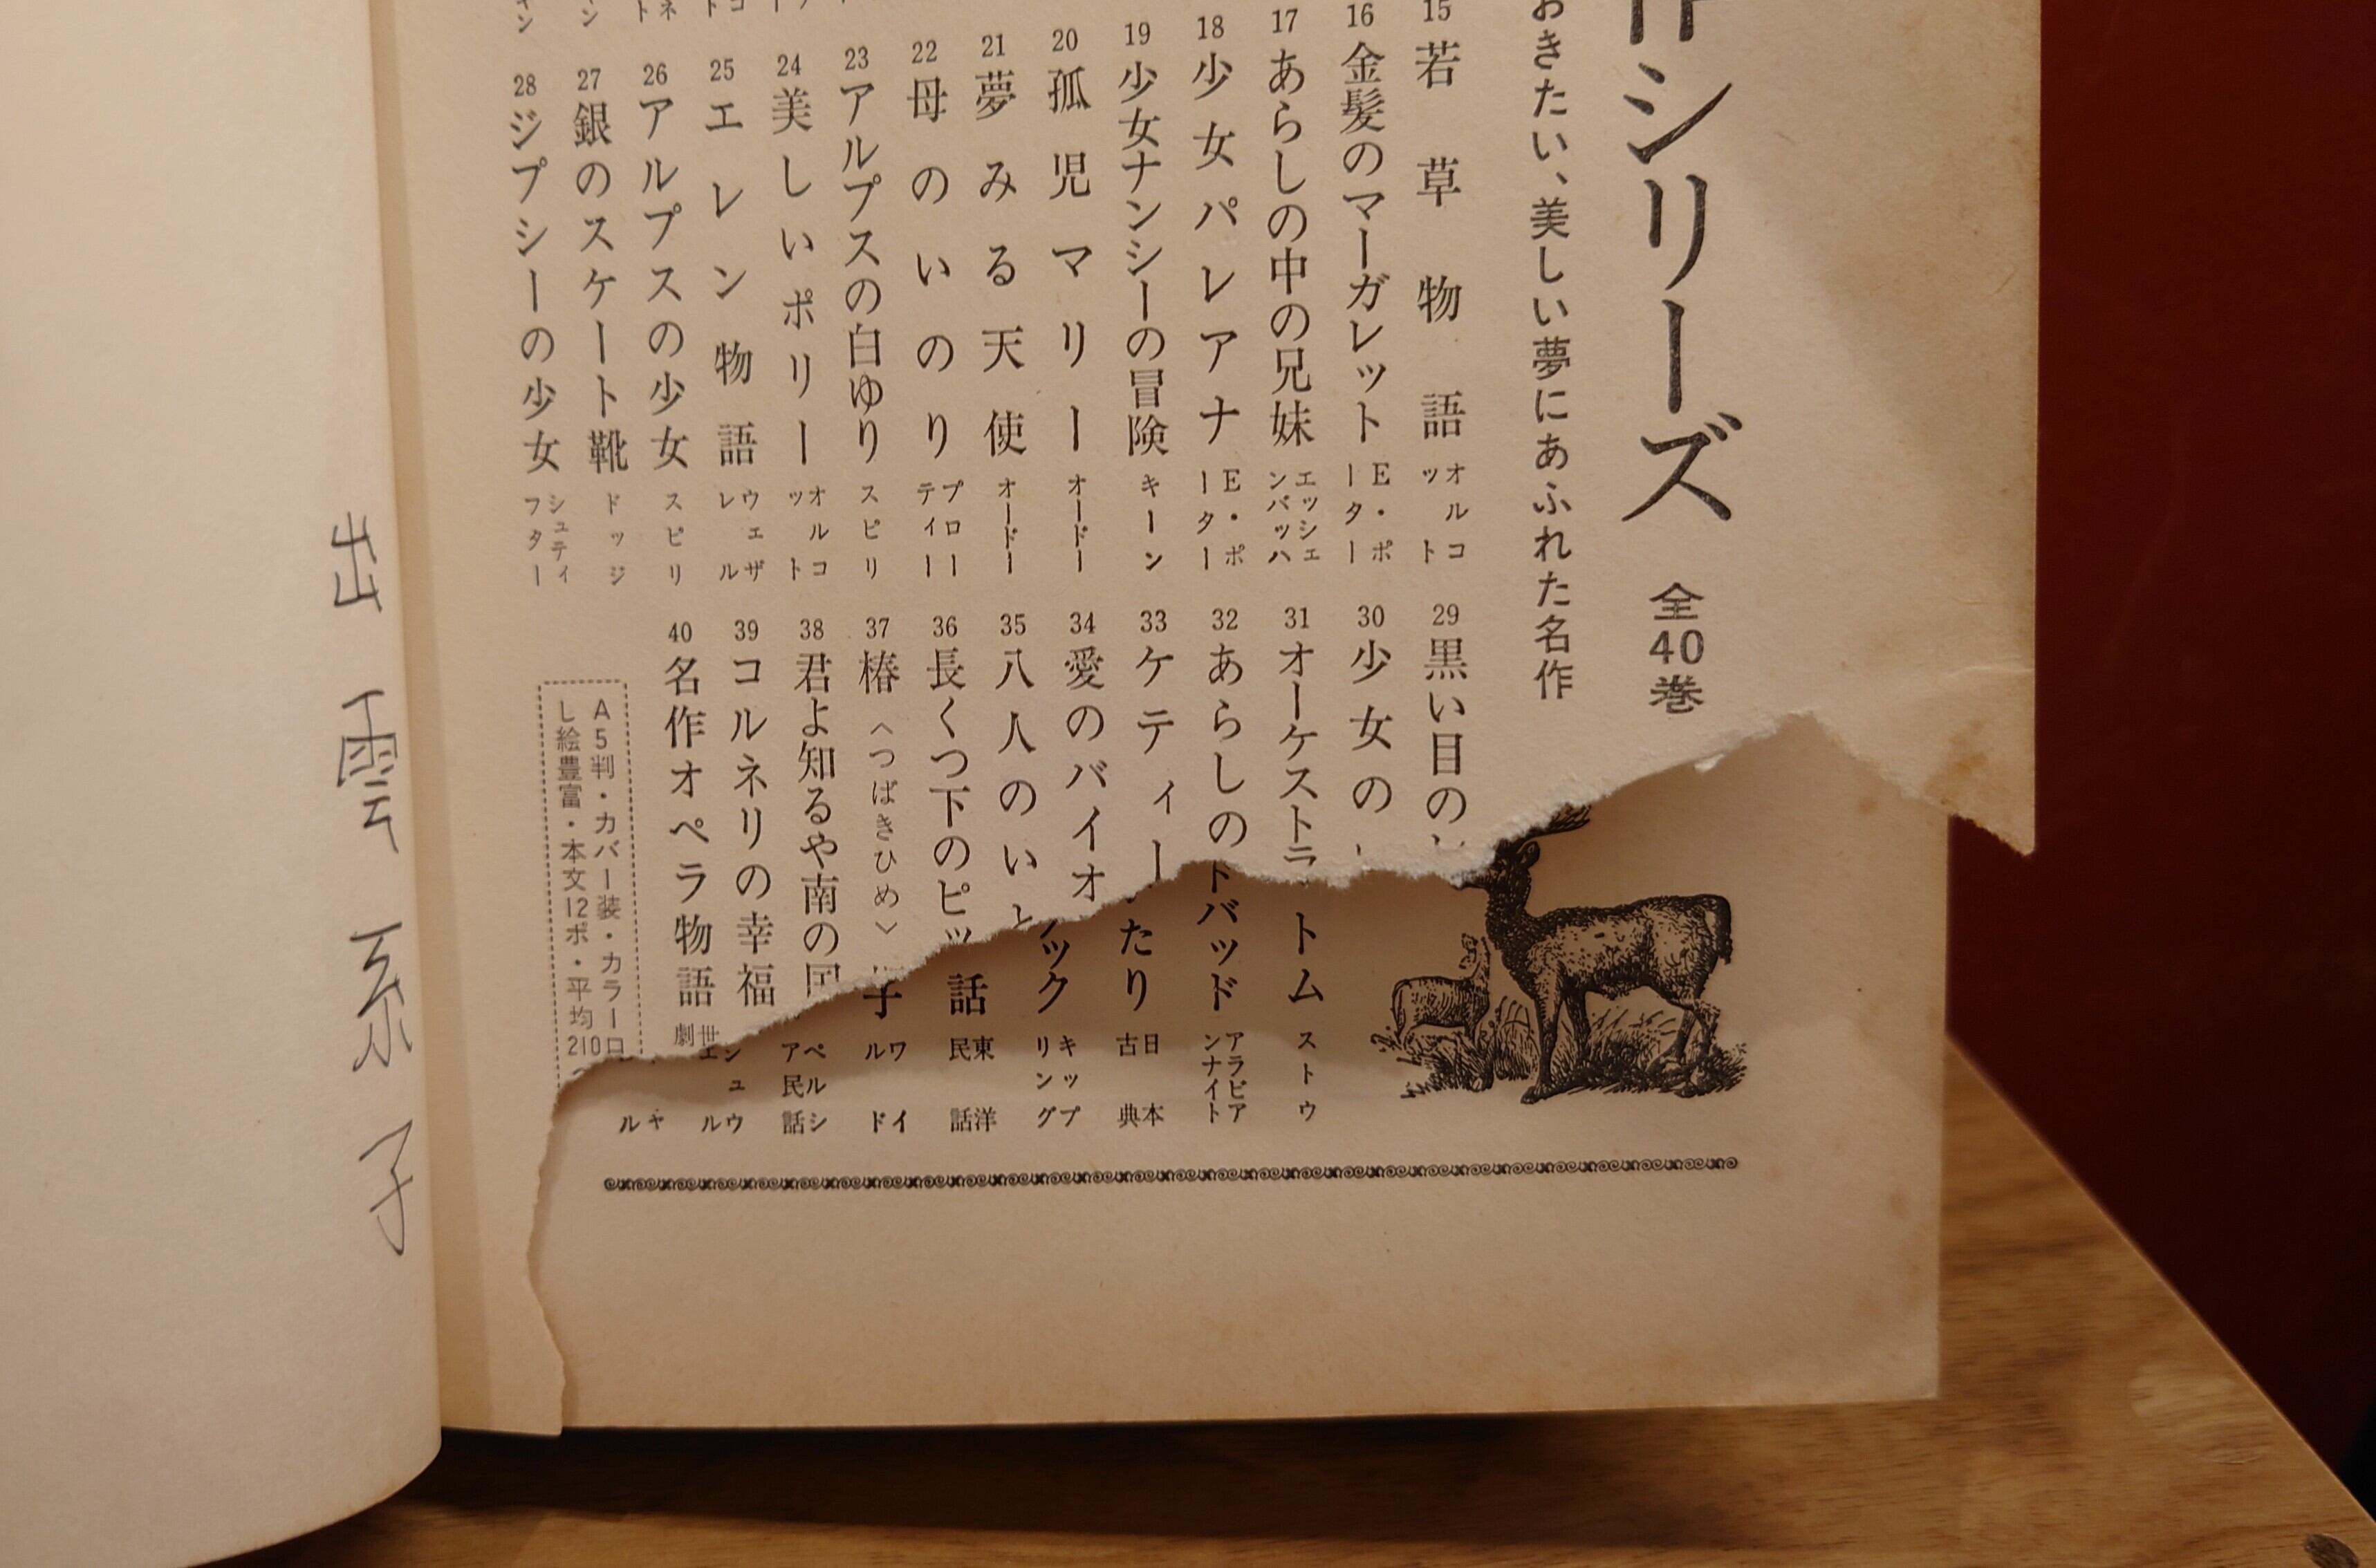 作シリーズ 全40巻
おきたい、美しい夢にあふれた名作
15 若草物語 オルコット
16 金髪のマーガレット E・ポーター
17 あらしの中の兄妹 エッシェンバッハ
18 少女パレアナ E・ポーター
19 少女ナンシーの冒険 キーン
20 孤児マリー オードー
21 夢みる天使 オードー
22 母のいのり プローティー
23 アルプスの白ゆり スピリ
24 美しいポリー オルコット
25 エレン物語 ウェザレル
26 アルプスの少女 スピリ
27 銀のスケート靴 ドッジ
28 ジプシーの少女 シュティフター
29 黒い目の
30 少女の
31 オーケストラ
32 あらしの
33 ケティー
34 愛のバイオ
35 八人のいと
36 長くつ下のピッ
37 椿〈つばきひめ〉
38 君よ知るや南の国
39 コルネリの幸福
40 名作オペラ物語
A5判・カバー装・カラー口
し絵豊富・本文12ポ・平均210
トム ストウ
ドバッド アラビアンナイト
たり 日本古典
ック キップリング
話 東洋民話
子 ワイルド
ペルシア民話
ンュウル
ャル
出雲系子